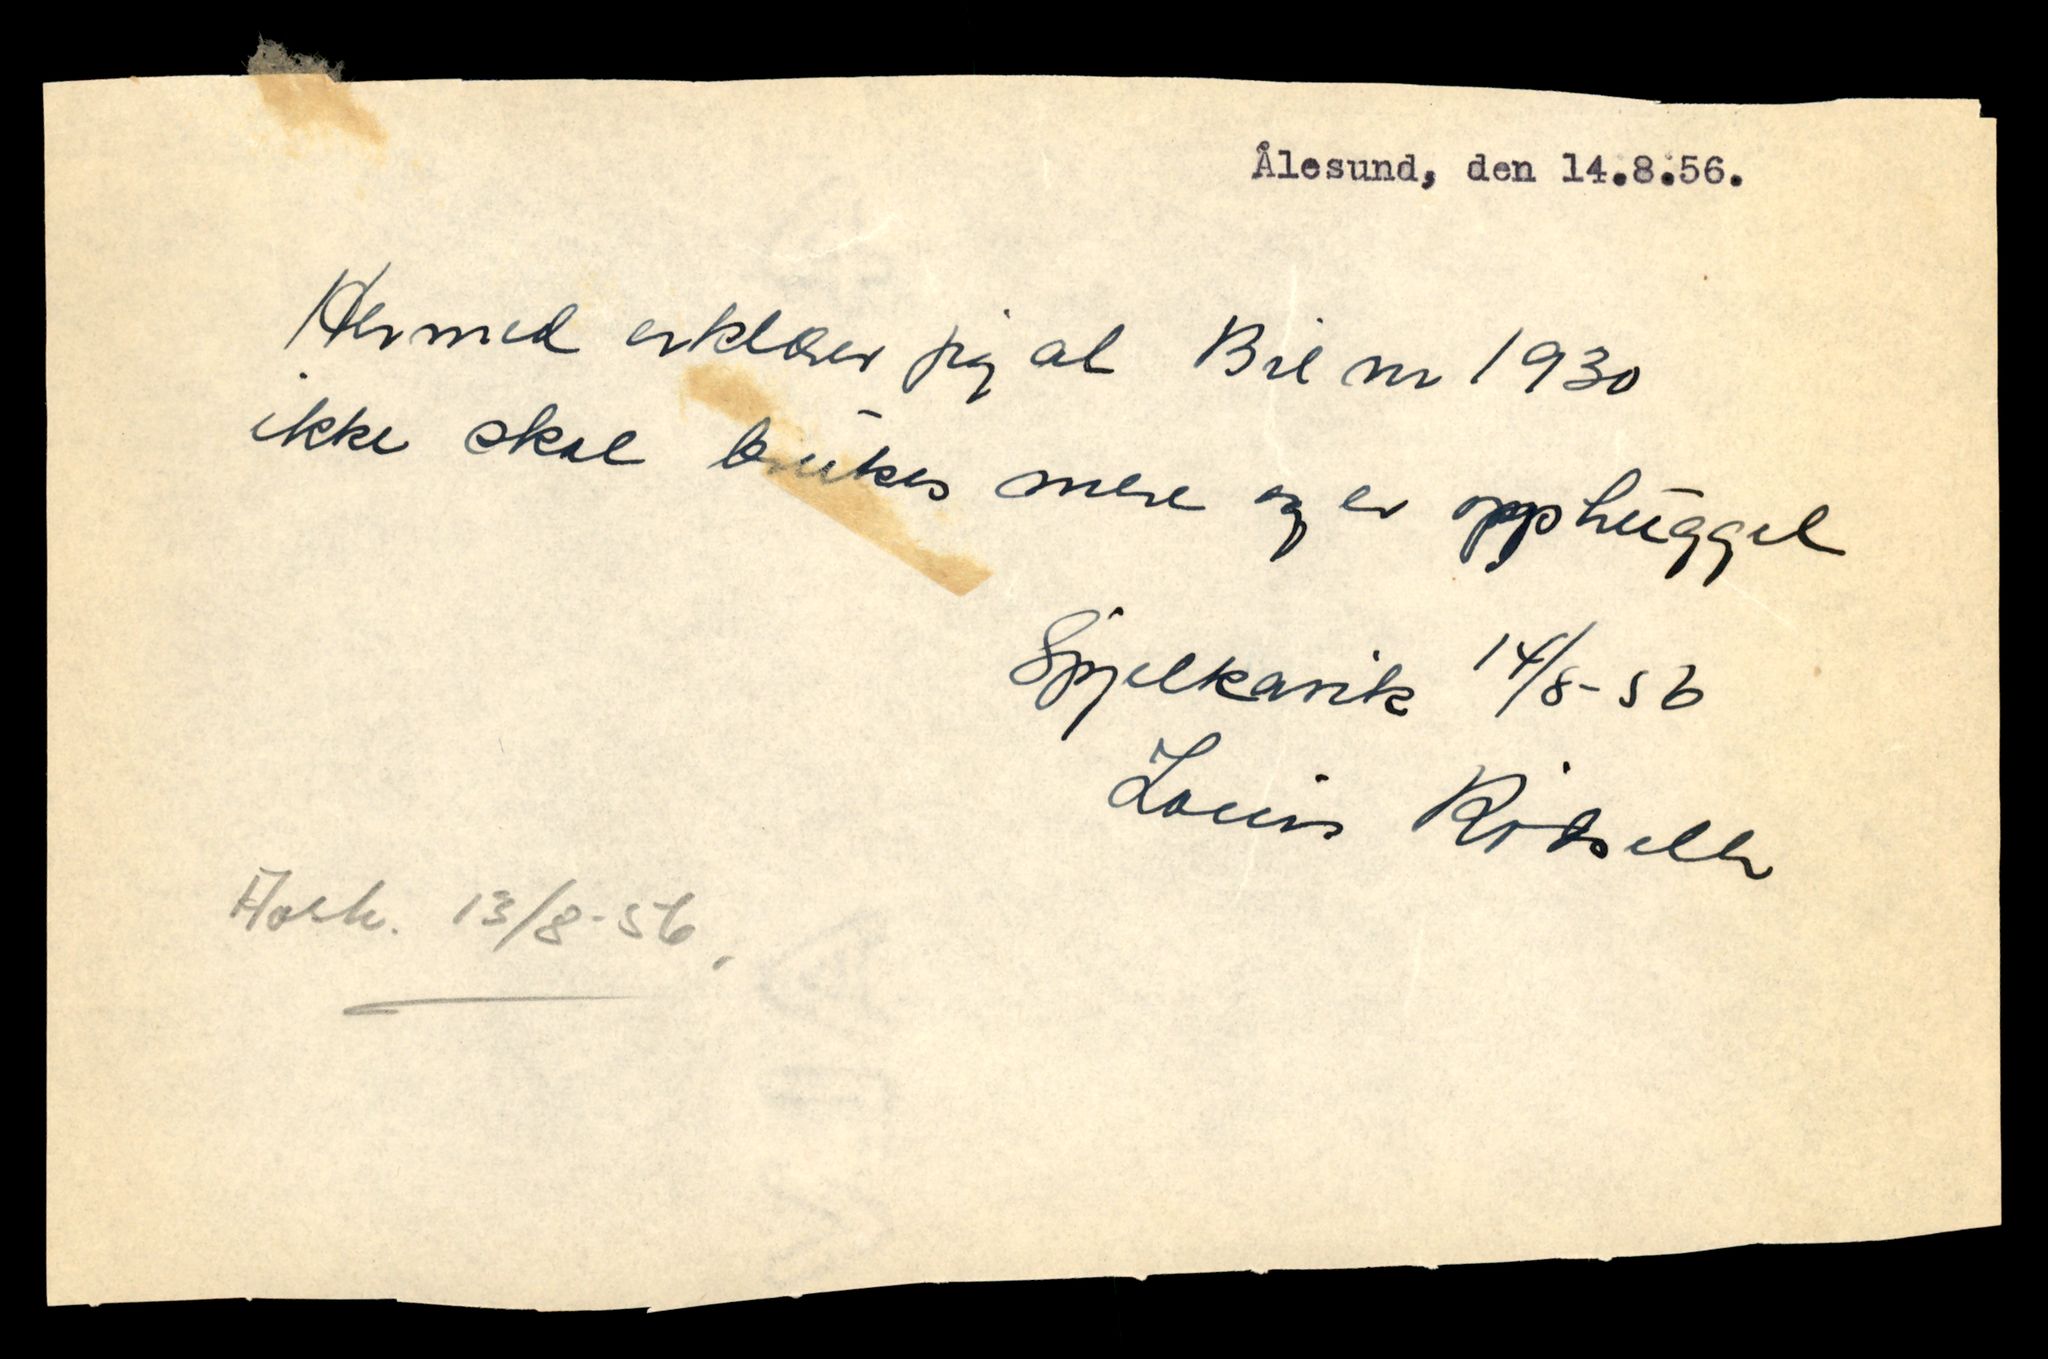 Ålesund, den 14.8.56.
Hermed erklærer jeg at Bil nr 1930
ikke skal brukes mere og er opphugget
Spjelkavik 14/8-56
Louis Rødseth
13/8-56.